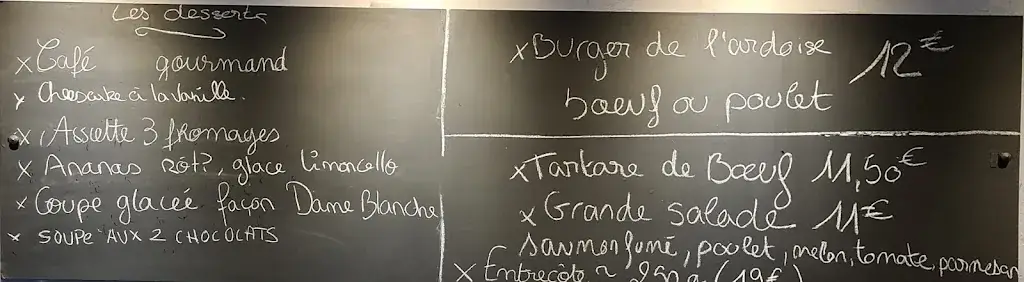 Les desserts
x Café gourmand
x Cheescake à la vanille.
x Assiette 3 fromages
x Ananas rôti, glace limoncello
x Coupe glacée façon Dame Blanche
x SOUPE AUX 2 CHOCOLATS
x Burger de l'ardoise 12€
bœuf ou poulet
x Tartare de Bœuf 11,50€
x Grande salade 11€
saumon fumé, poulet, melon, tomate, parmesan
x Entrecôte ~ 250g (19€)